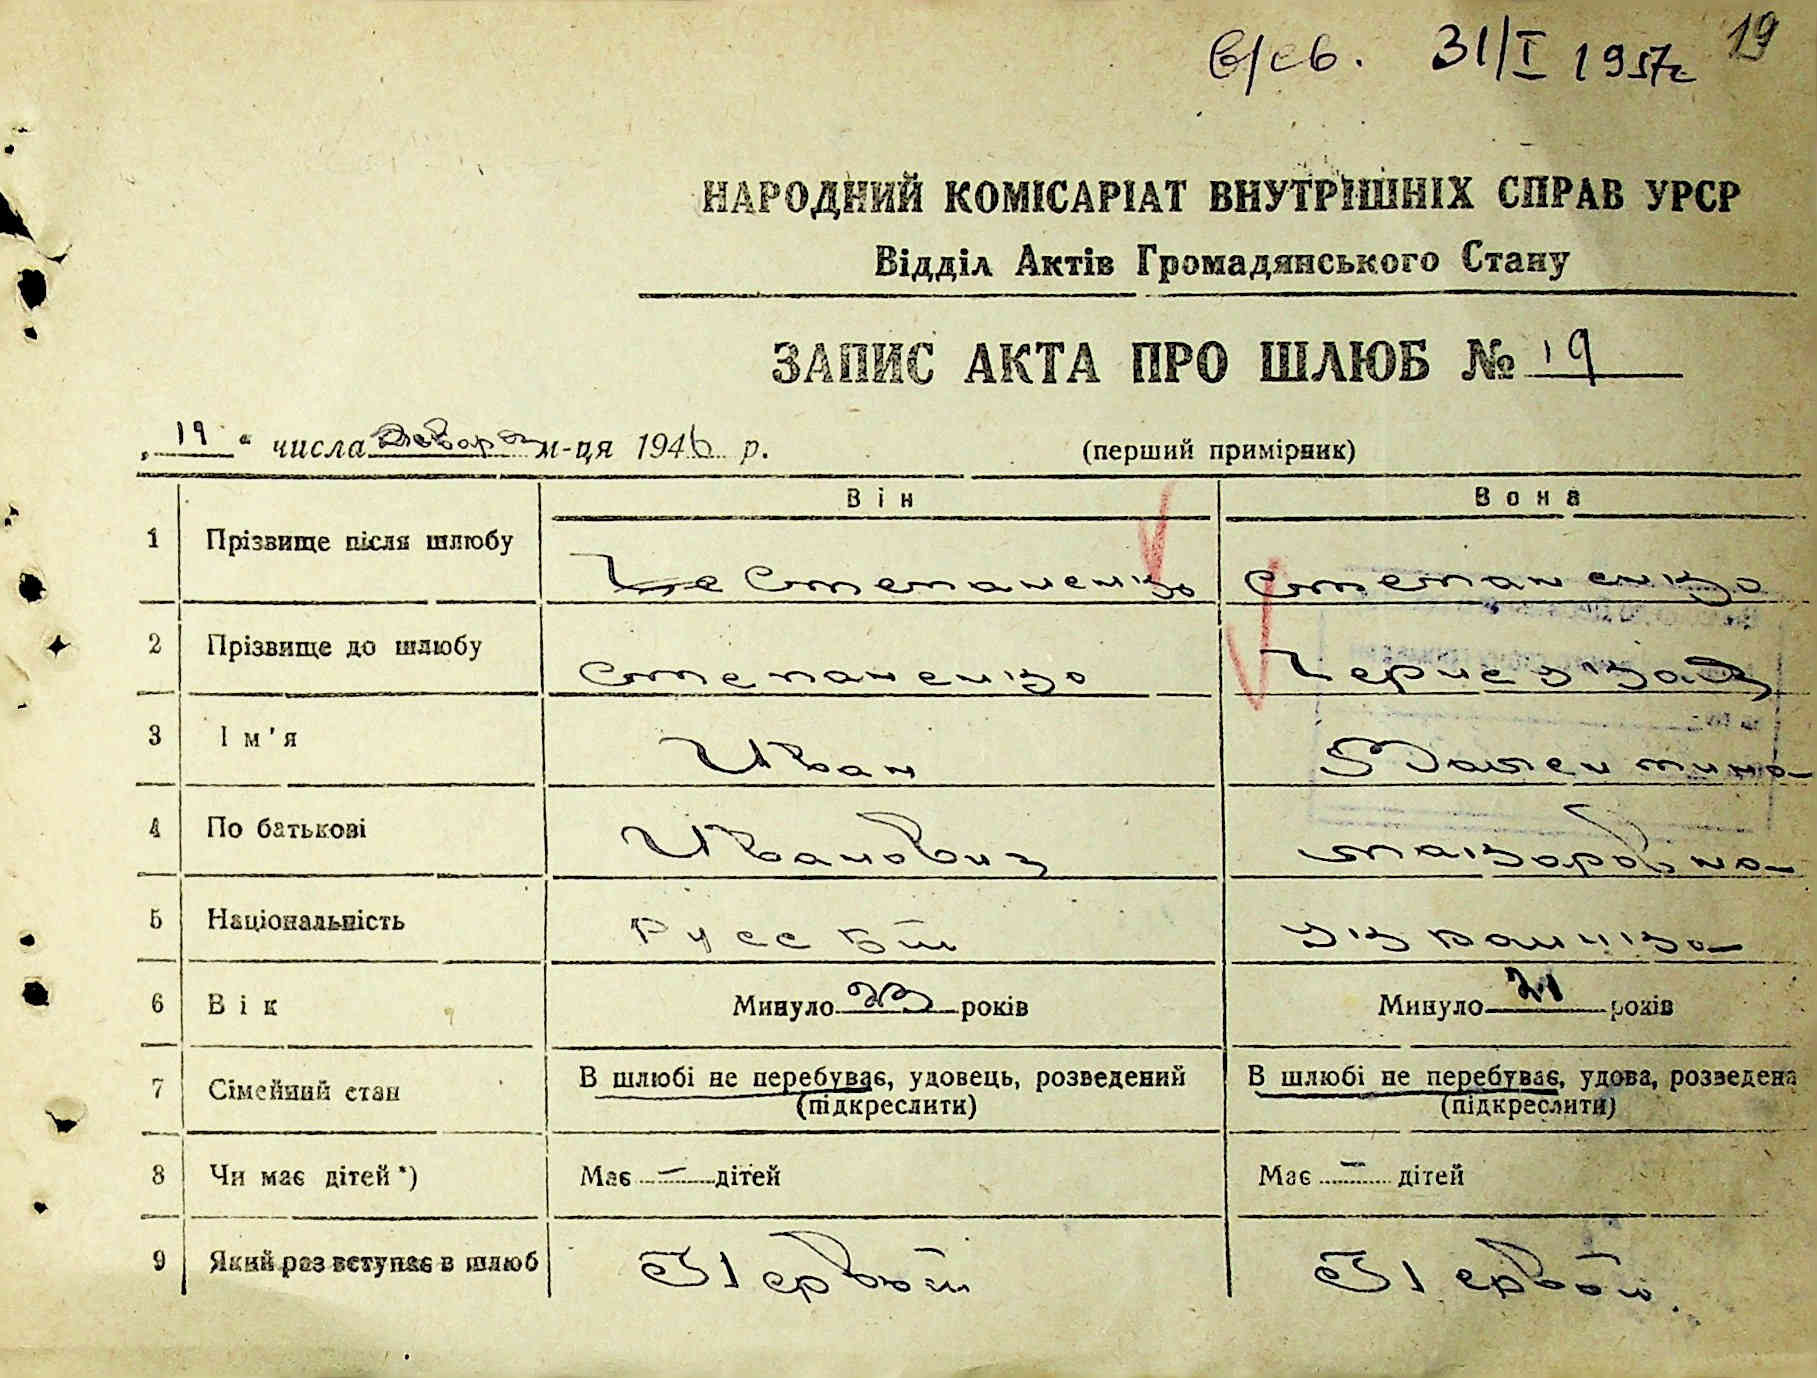 в/св. 31/I 1957г 19
НАРОДНИЙ КОМІСАРІАТ ВНУТРІШНІХ СПРАВ УРСР
Відділ Актів Громадянського Стану
ЗАПИС АКТА ПРО ШЛЮБ № 19
„19“ числа м-ця 1946 р. (перший примірник)
Він Вона
1 Прізвище після шлюбу Степаненко Степаненко
2 Прізвище до шлюбу Степаненко
3 Ім'я Иван Валентина
4 По батькові Иванович Макаровна
5 Національність Русский Украинка
6 Вік Минуло 23 років Минуло 21 років
7 Сімейний стан В шлюбі не перебуває, удовець, розведений В шлюбі не перебуває, удова, розведена
(підкреслити) (підкреслити)
8 Чи має дітей*) Має — дітей Має — дітей
9 Який раз вступає в шлюб Первый Первый.